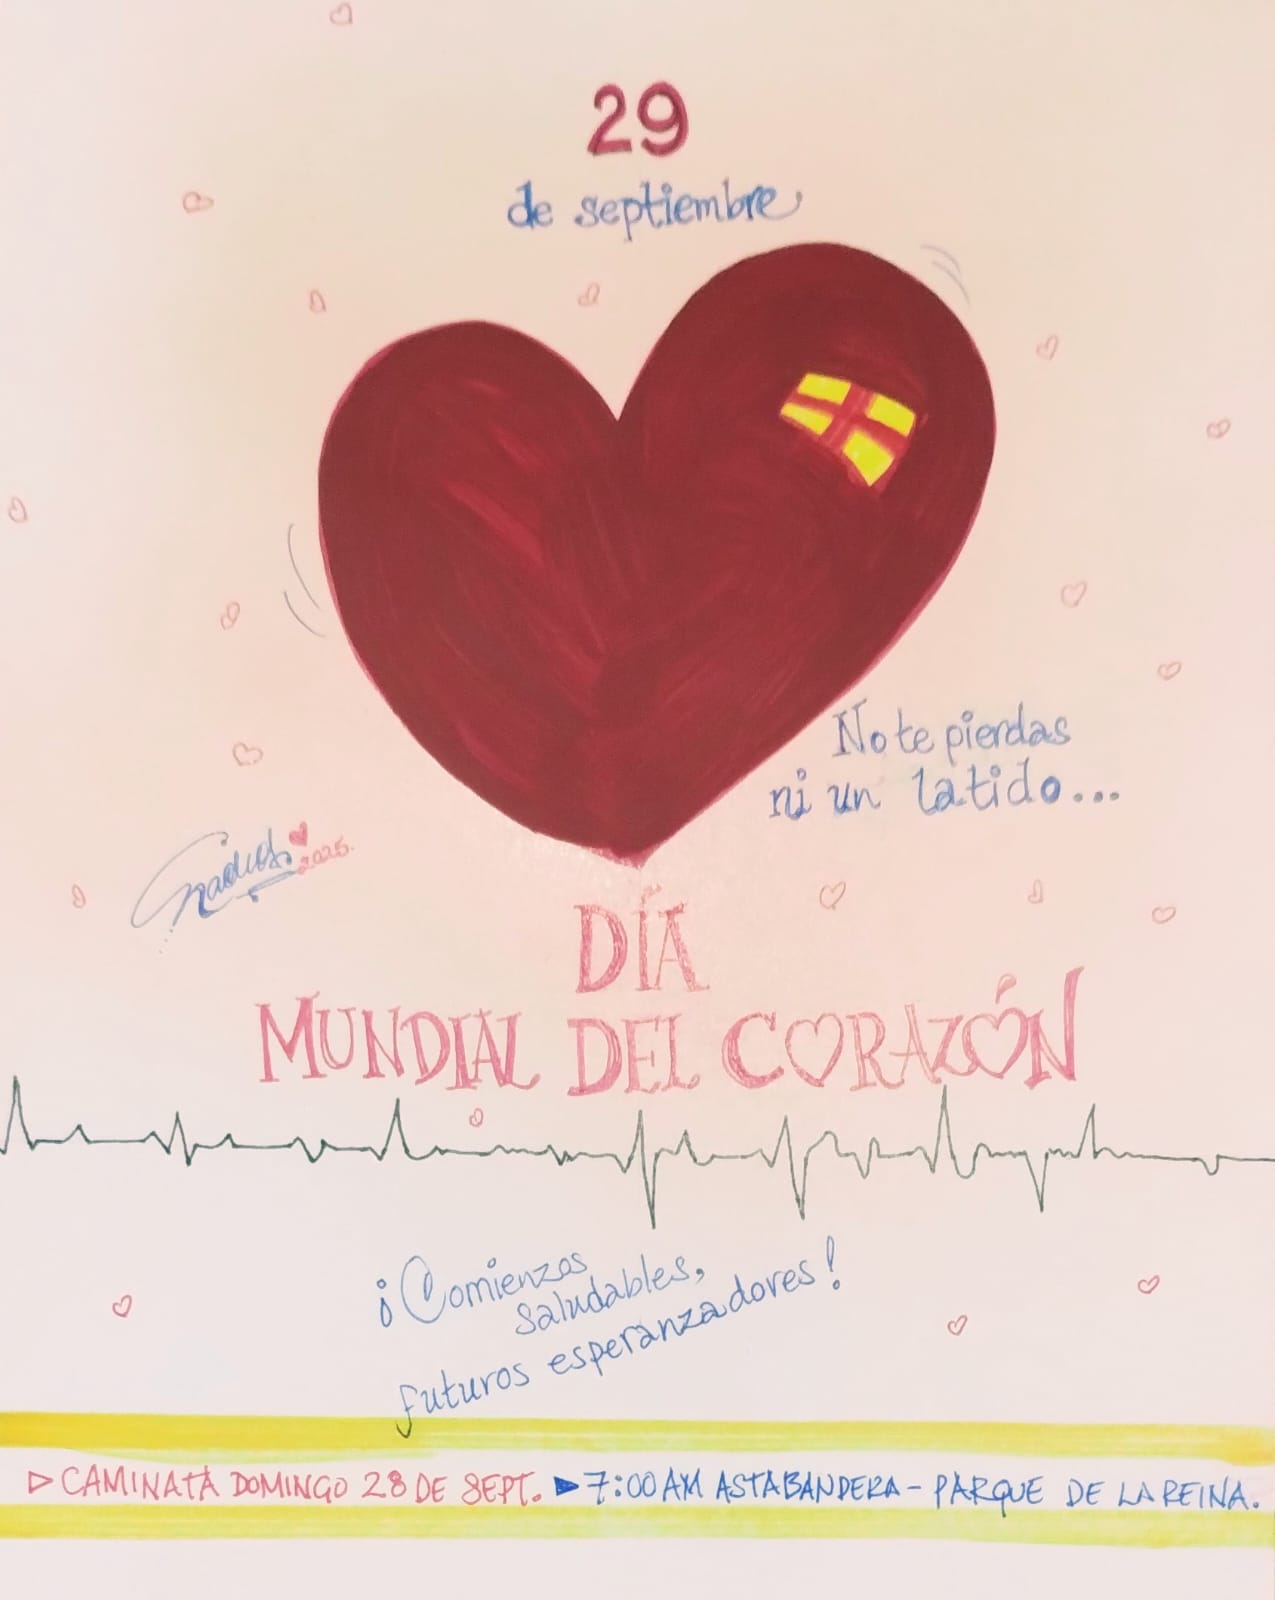 29
de septiembre
No te pierdas
ni un latido...
2025.
DÍA
MUNDIAL DEL CORAZÓN
¡Comienzos
saludables,
futuros esperanzadores!
▷ CAMINATA DOMINGO 28 DE SEPT. ▶ 7:00 AM ASTABANDERA - PARQUE DE LA REINA.